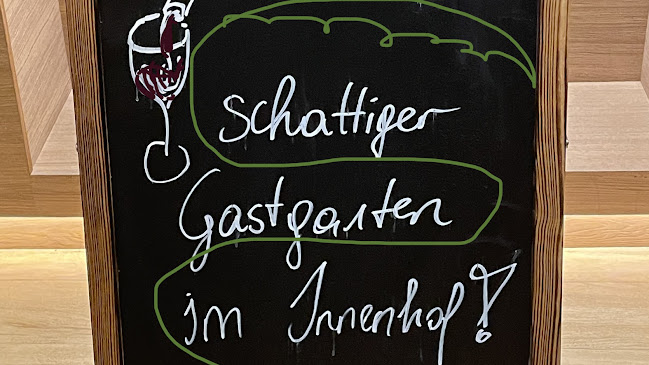 Schattiger
Gastgarten
im Innenhof!